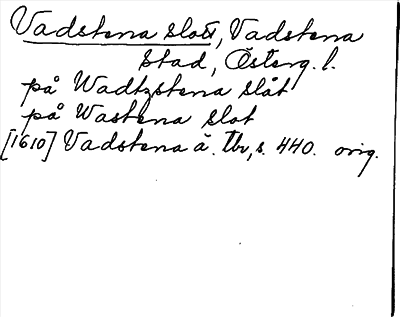 Vadstena slott, Vadstena
stad, Österg. l.
på Wadtzstena slåt
på Wastena slot
[1610] Vadstena ä. Tb, s. 440. orig.